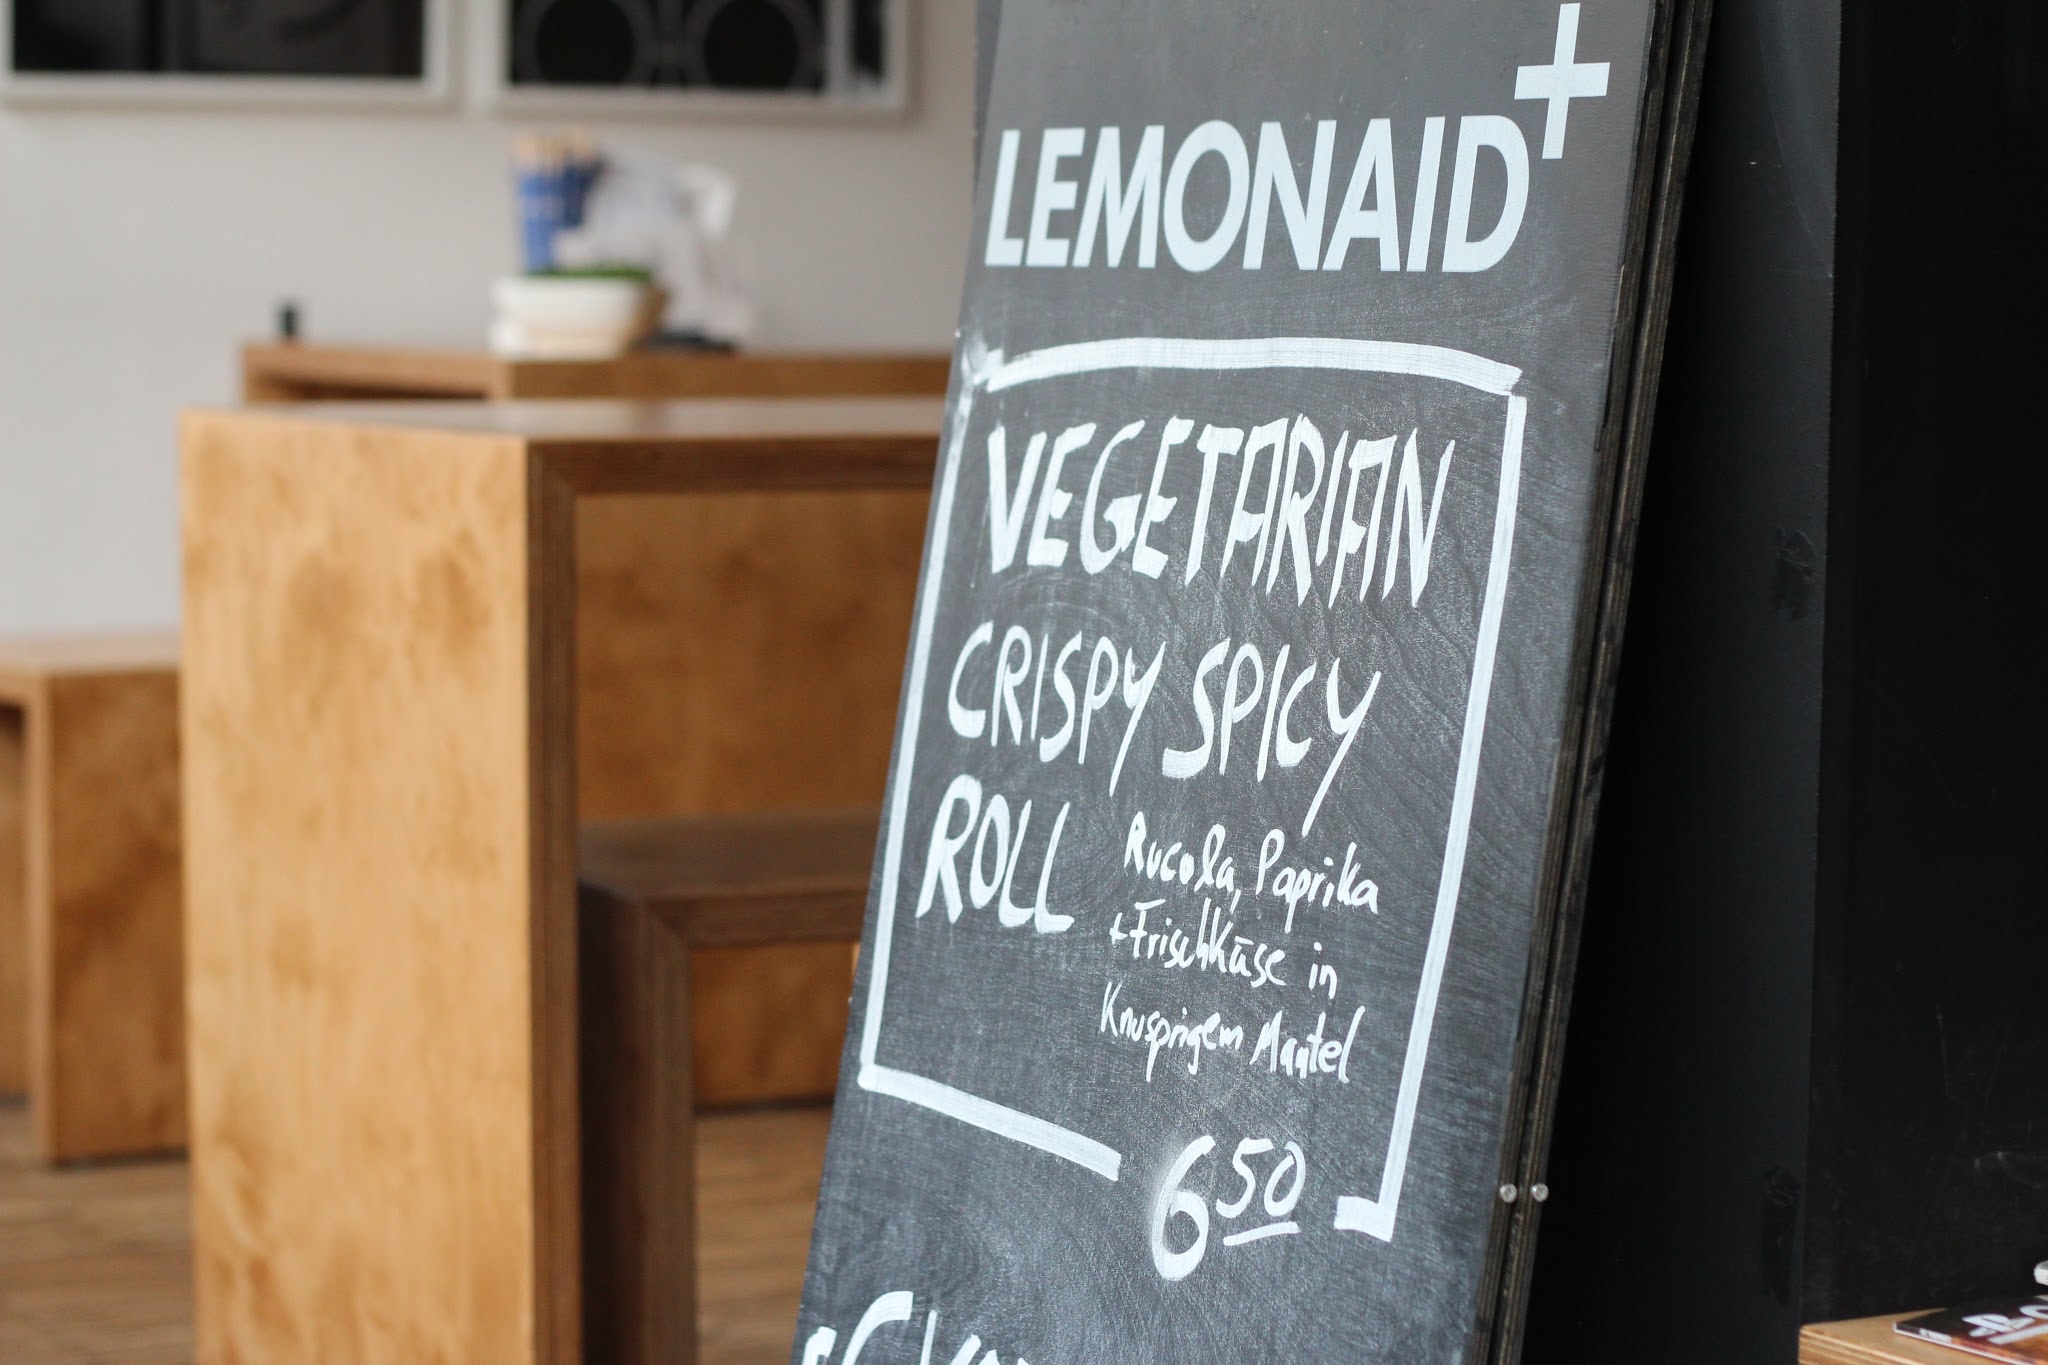 LEMONAID+
VEGETARIAN
CRISPY SPICY
ROLL
Rucola, Paprika
+Frischkäse in
Knusprigem Mantel
6 50